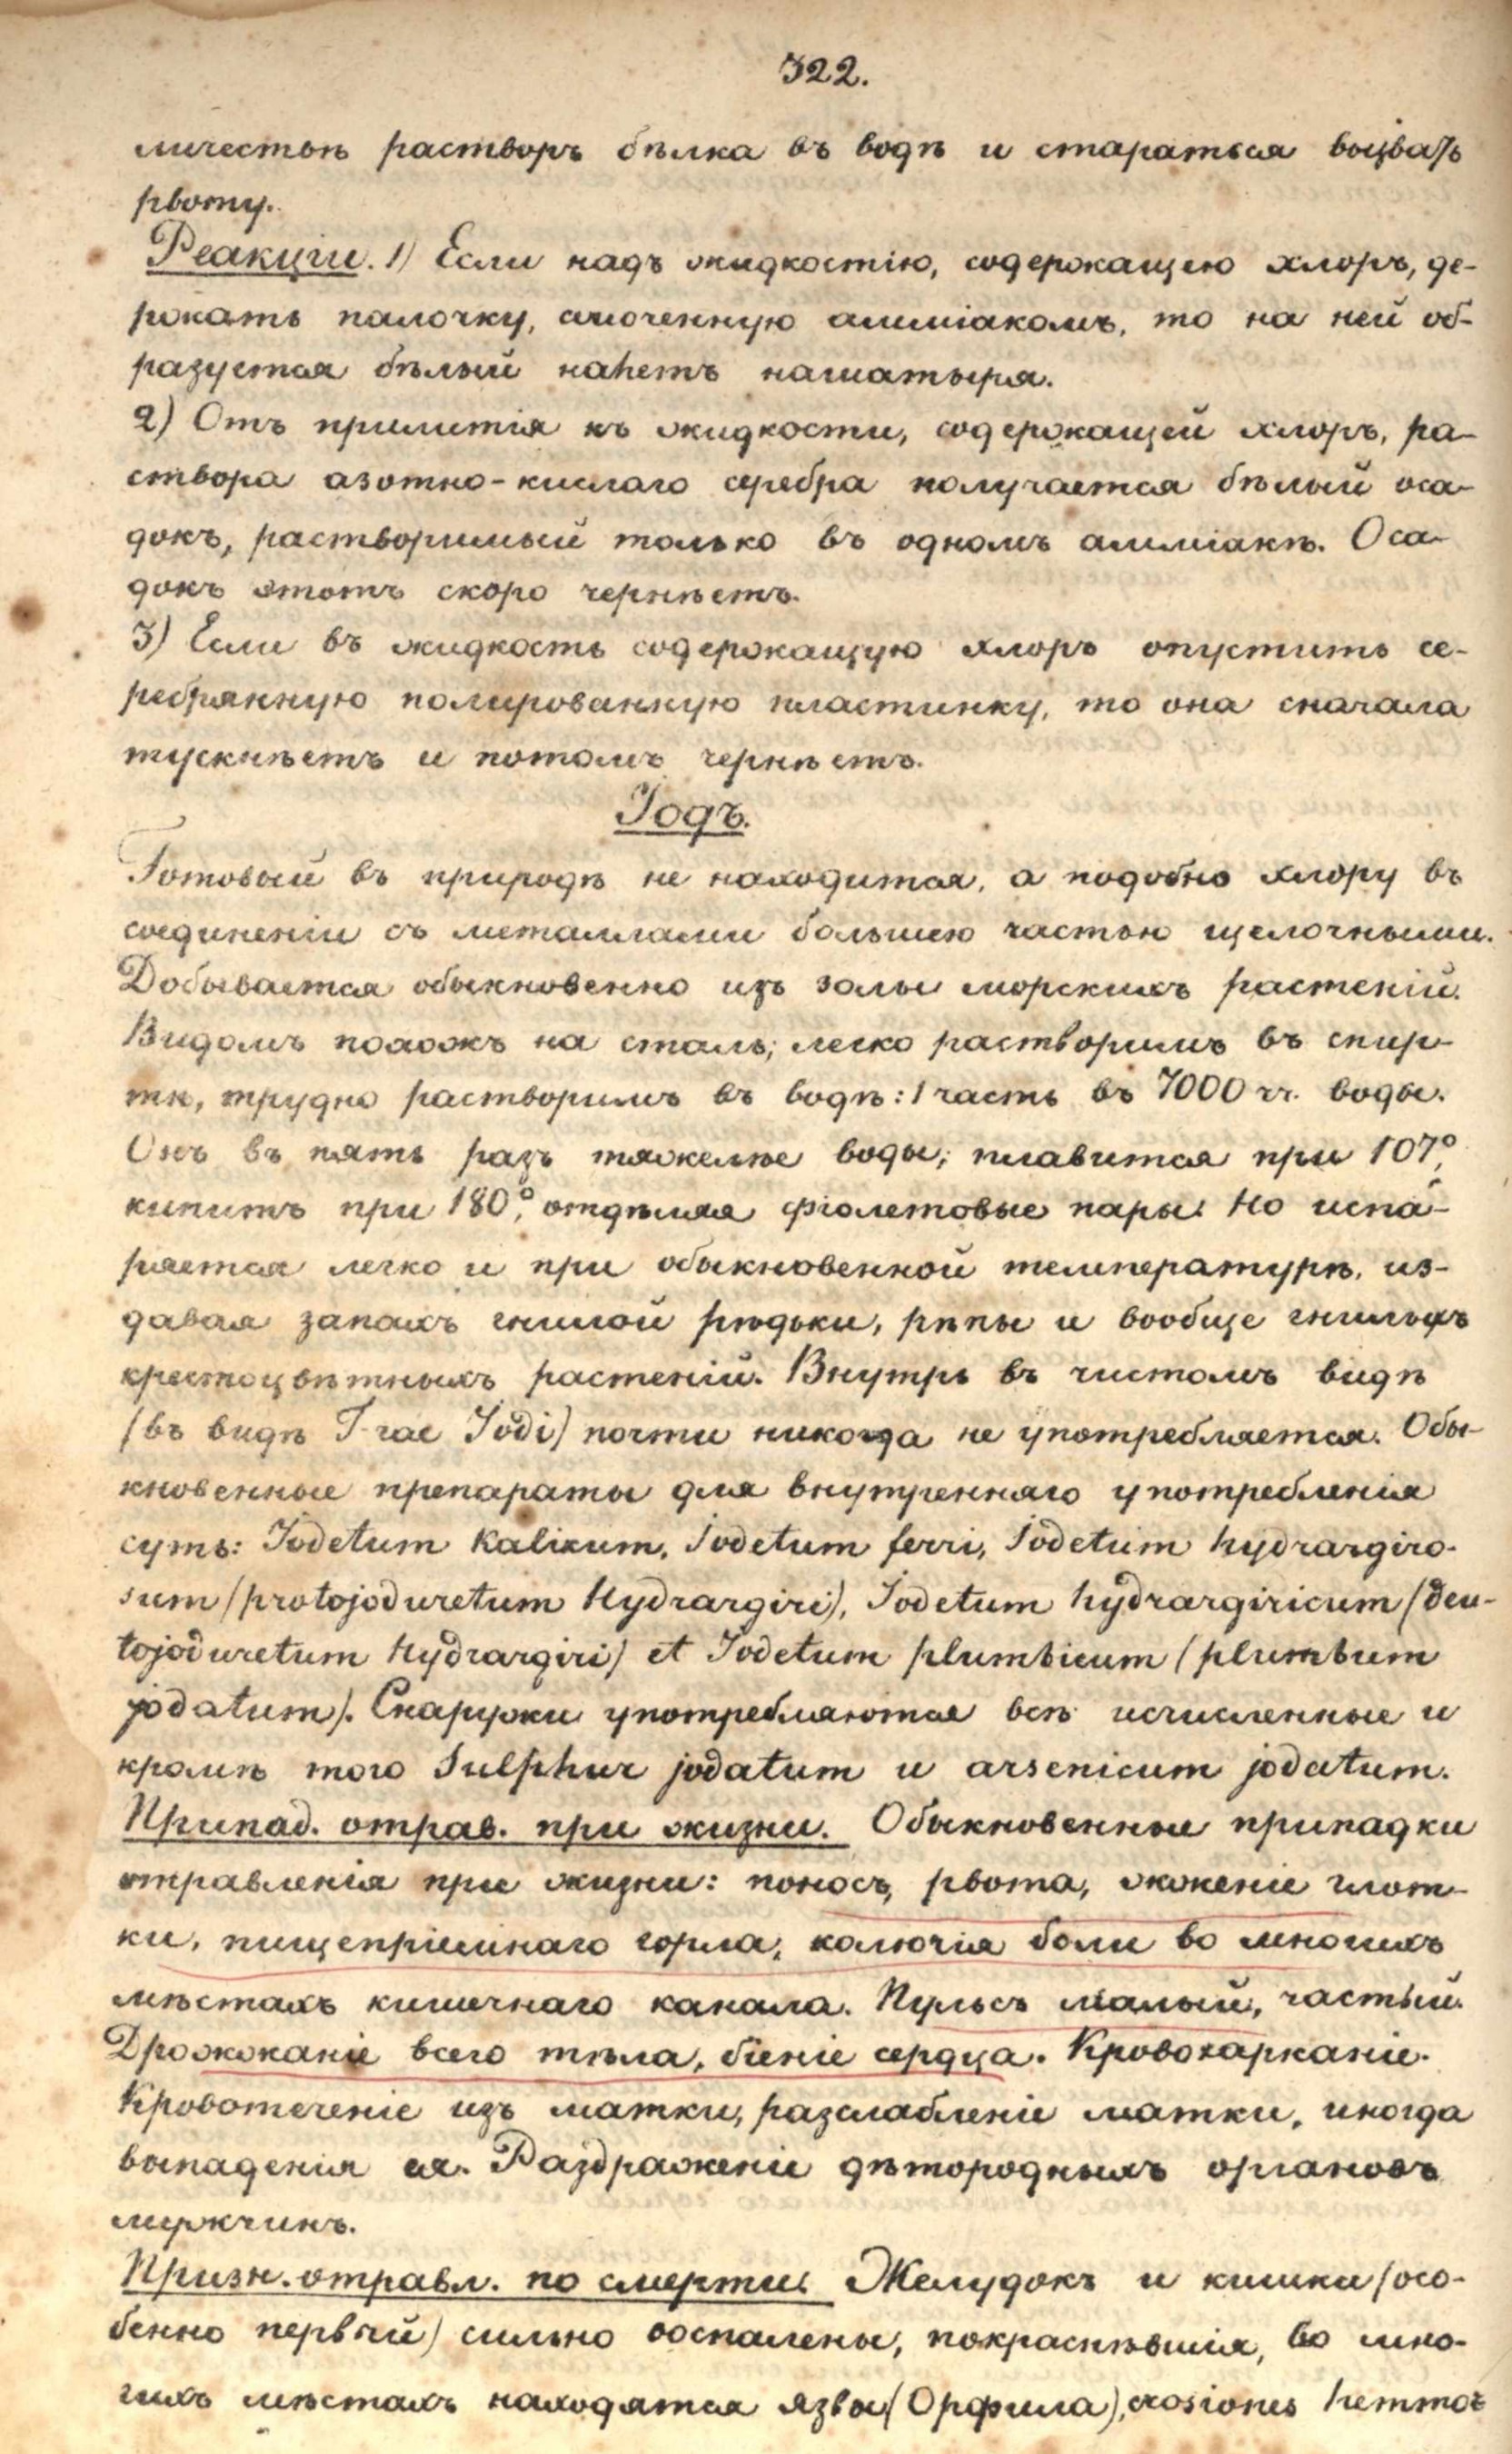 322.
личествѣ растворъ бѣлка въ водѣ и стараться вызвать
рвоту.
Реакціи. 1) Если надъ жидкостію, содержащею хлоръ, де-
ржать палочку, смоченную амміакомъ, то на ней об-
разуется бѣлый налетъ нашатыря.
2) Отъ прилитія къ жидкости, содержащей хлоръ, ра-
створа азотно-кислаго серебра получается бѣлый оса-
докъ, растворимый только въ одномъ амміакѣ. Оса-
докъ этотъ скоро чернѣетъ.
3) Если въ жидкость содержащую хлоръ опустить се-
ребрянную полированную пластинку, то она сначала
тускнѣетъ и потомъ чернѣетъ.
Іодъ.
Готовый въ природѣ не находится, а подобно хлору въ
соединеніи съ металлами большею частью щелочными.
Добывается обыкновенно изъ золы морскихъ растеній.
Видомъ похожъ на сталь; легко растворимъ въ спир-
тѣ, трудно растворимъ въ водѣ: 1 часть въ 7000 чч. воды.
Онъ въ пять разъ тяжелѣе воды; плавится при 107°,
кипитъ при 180°, отдѣляя фіолетовые пары. Но испа-
ряется легко и при обыкновенной температурѣ, из-
давая запахъ гнилой рѣдьки, рѣпы и вообще гнилыхъ
крестоцвѣтныхъ растеній. Внутрь въ чистомъ видѣ
(въ видѣ T-rae Jodi) почти никогда не употребляется. Обы-
кновенные препараты для внутренняго употребленія
суть: Jodetum Kalicum, Jodetum ferri, Jodetum hydrargiro-
sum (protojoduretum Hydrargiri), Jodetum hydrargiricum (deu-
tojoduretum Hydrargiri) et Jodetum plumbicum (plumbum
jodatum). Снаружи употребляются всѣ исчисленные и
кромѣ того Sulphur jodatum и arsenicum jodatum.
Припад. отрав. при жизни. Обыкновенные припадки
отравленія при жизни: поносъ, рвота, жженіе глот-
ки, пищепріимнаго горла, колючія боли во многихъ
мѣстахъ кишечнаго канала. Пульсъ малый, частый.
Дрожжаніе всего тѣла, біеніе сердца. Кровохарканіе.
Кровотеченіе изъ матки, разслабленіе матки, иногда
выпаденія ея. Раздраженіе дѣтородныхъ органовъ
мужчинъ.
Призн. отравл. по смерти. Желудокъ и кишки (осо-
бенно первый) сильно воспалены, покраснѣвшія, во мно-
гихъ мѣстахъ находятся язвы (Орфила), erosiones